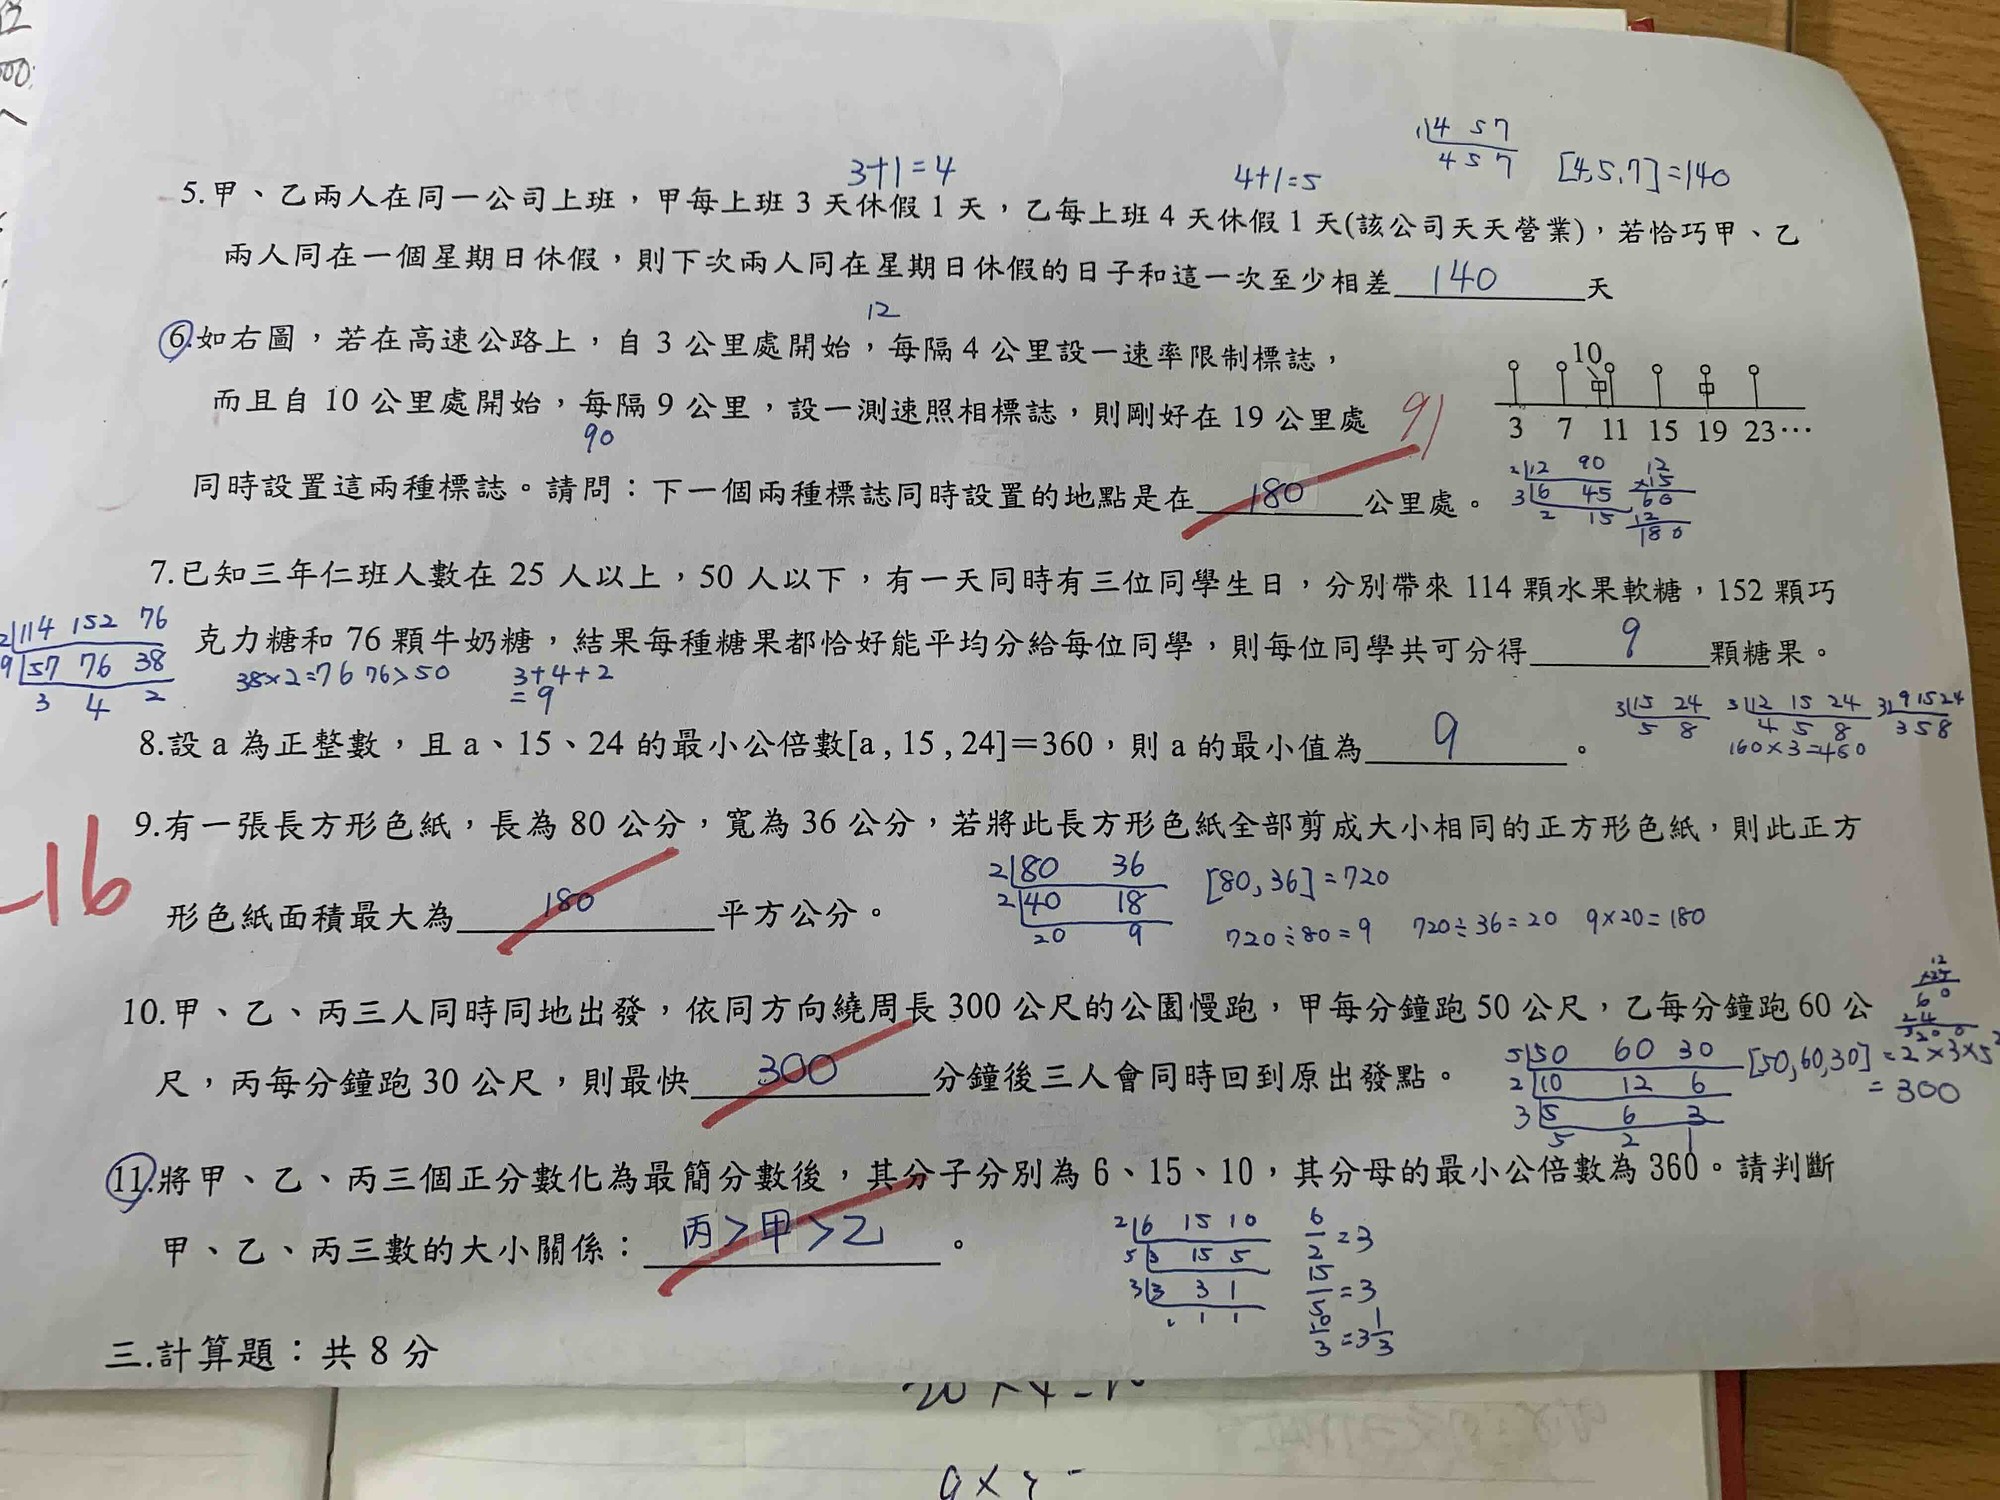 3+1=4
4+1=5
1 4 5 7
4 5 7
[4,5,7]=140
5.甲、乙兩人在同一公司上班，甲每上班 3 天休假 1 天，乙每上班 4 天休假 1 天(該公司天天營業)，若恰巧甲、乙
兩人同在一個星期日休假，則下次兩人同在星期日休假的日子和這一次至少相差 140 天
12
6.如右圖，若在高速公路上，自 3 公里處開始，每隔 4 公里設一速率限制標誌，
而且自 10 公里處開始，每隔 9 公里，設一測速照相標誌，則剛好在 19 公里處
90
91
同時設置這兩種標誌。請問：下一個兩種標誌同時設置的地點是在 180 公里處。
10
3 7 11 15 19 23…
2 12 90
3 6 45
2 15
12
×15
60
12
180
7.已知三年仁班人數在 25 人以上，50 人以下，有一天同時有三位同學生日，分別帶來 114 顆水果軟糖，152 顆巧
克力糖和 76 顆牛奶糖，結果每種糖果都恰好能平均分給每位同學，則每位同學共可分得 9 顆糖果。
2 114 152 76
9 57 76 38
3 4 2
38×2=76 76>50
3+4+2
=9
8.設 a 為正整數，且 a、15、24 的最小公倍數[a , 15 , 24]＝360，則 a 的最小值為 9 。
3 15 24
5 8
3 12 15 24
4 5 8
160×3=480
3 9 15 24
3 5 8
-16
9.有一張長方形色紙，長為 80 公分，寬為 36 公分，若將此長方形色紙全部剪成大小相同的正方形色紙，則此正方
形色紙面積最大為 180 平方公分。
2 80 36
2 40 18
20 9
[80,36]=720
720÷80=9 720÷36=20 9×20=180
10.甲、乙、丙三人同時同地出發，依同方向繞周長 300 公尺的公園慢跑，甲每分鐘跑 50 公尺，乙每分鐘跑 60 公
尺，丙每分鐘跑 30 公尺，則最快 300 分鐘後三人會同時回到原出發點。
5 50 60 30
2 10 12 6
3 5 6 3
5 2 1
[50,60,30]=2×3×5²
=300
11.將甲、乙、丙三個正分數化為最簡分數後，其分子分別為 6、15、10，其分母的最小公倍數為 360。請判斷
甲、乙、丙三數的大小關係： 丙>甲>乙 。
2 6 15 10
5 3 15 5
3 3 3 1
1 1
6/2=3
15/5=3
10/3=3 1/3
三.計算題：共 8 分